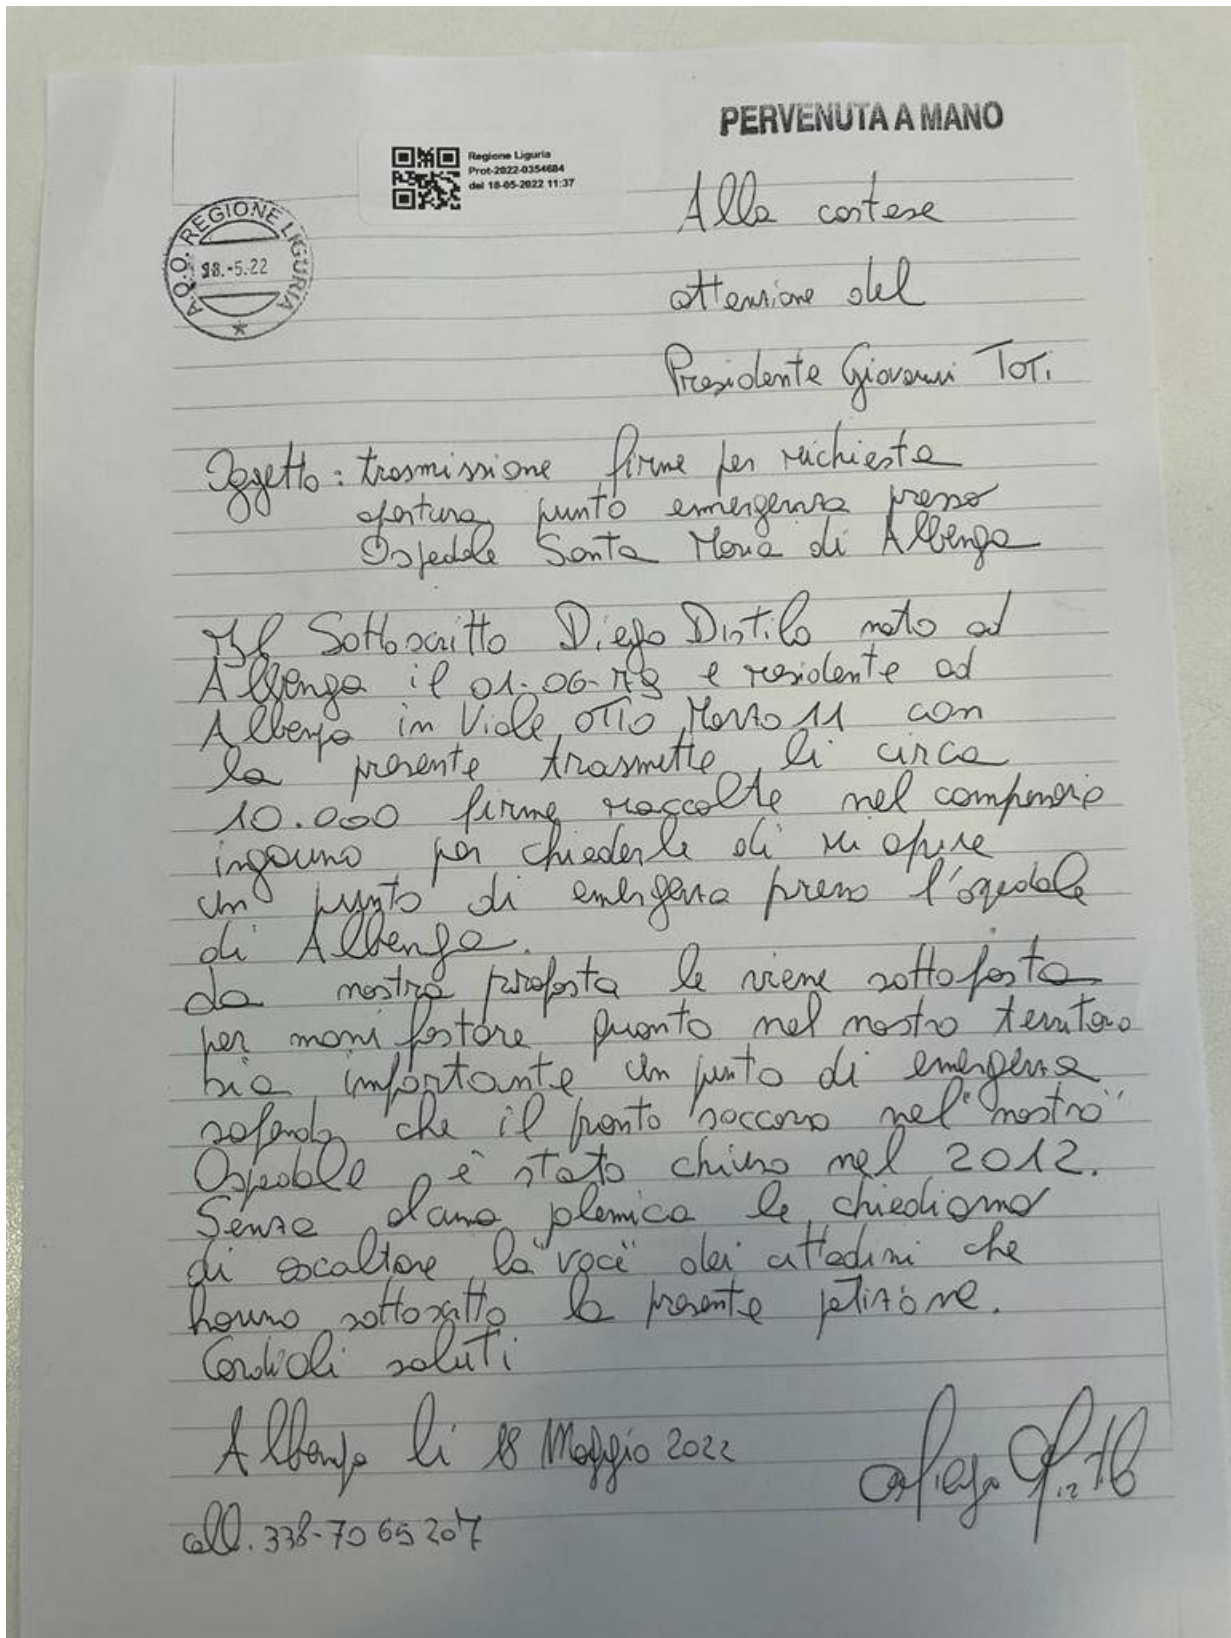 PERVENUTA A MANO
Regione Liguria
Prot-2022-0354684
del 18-05-2022 11:37
A.O.O. REGIONE LIGURIA
18.-5.22
Alla cortese
attenzione del
Presidente Giovanni Toti
Oggetto: trasmissione firme per richiesta
apertura punto emergenza presso
Ospedale Santa Maria di Albenga
Il Sottoscritto Diego Distilo nato ad
Albenga il 01-06-79 e residente ad
Albenga in Viale Otto Marzo 11 con
la presente trasmette li circa
10.000 firme raccolte nel comprensorio
ingauno per chiederle di ri aprire
un punto di emergenza presso l'ospedale
di Albenga.
La nostra proposta le viene sottoposta
per manifestare quanto nel nostro territorio
sia importante un punto di emergenza
sapendo che il pronto soccorso nel "nostro"
Ospedale è stato chiuso nel 2012.
Senza alcuna plemica le chiediamo
di ascoltare la "voce" dei cittadini che
hanno sottoscritto la presente petizione.
Cordiali saluti
Albenga li 18 Maggio 2022
cell. 338-7065207